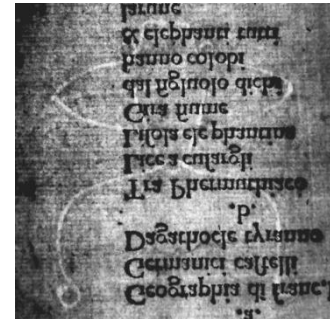 .a.
Geographia di Franc.
Germanici caſtelli
Dagathocle tyranno
.b.
Tra Phermuthiaco
Lice a cuſargli
Liſola elephantina
fiume
dal figluolo dicha
hanno colobi
& elephanti tutti
larune